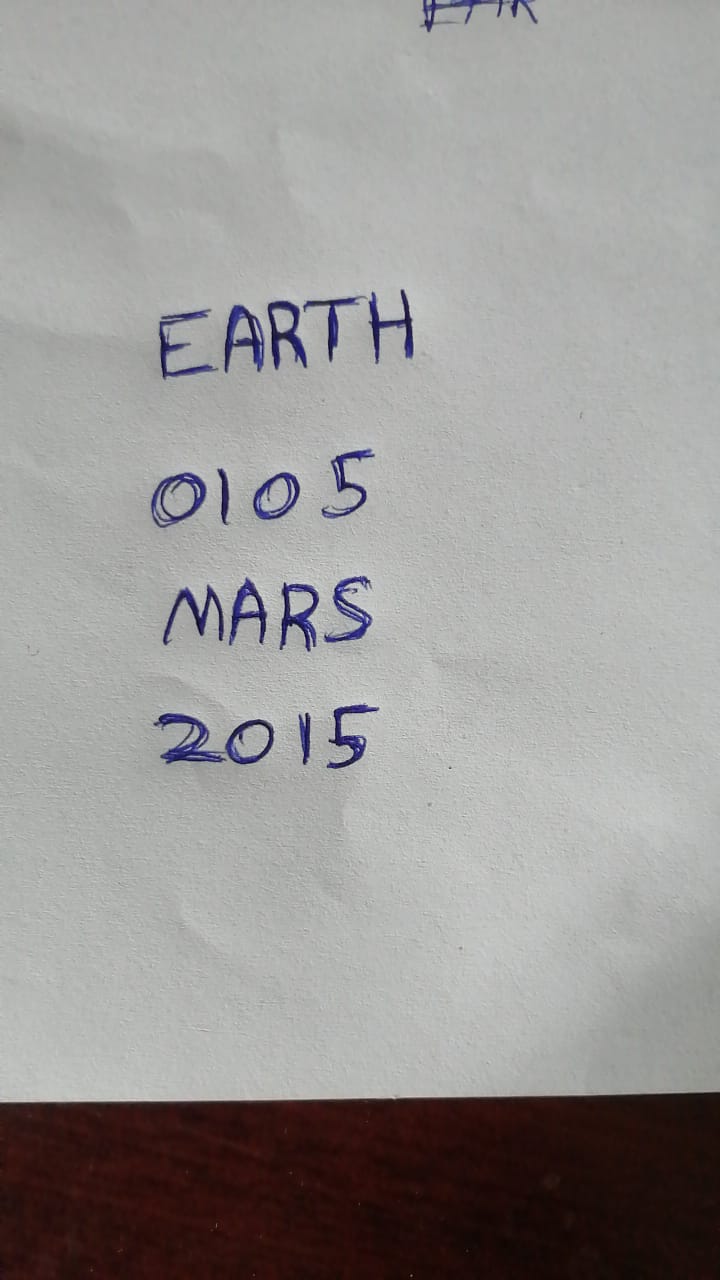 EARTH
0105
MARS
2015